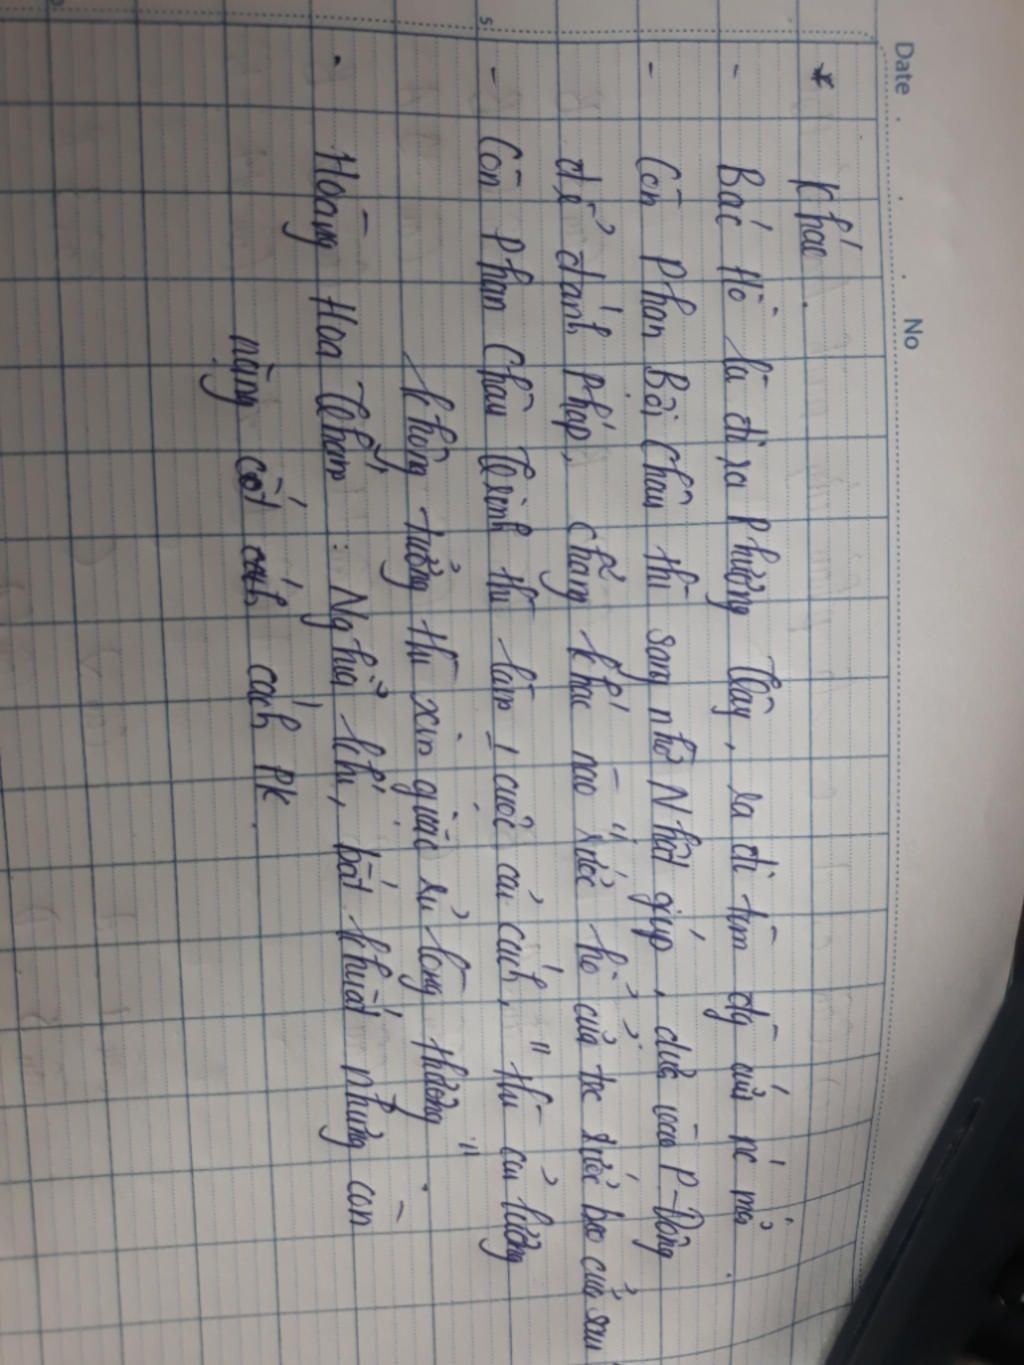 Date . No
* Khác .
- Bác Hồ là đi ra Phương Tây, ra đi tìm đg cứu nc mới .
- Còn Phan Bội Châu thì sang nhờ Nhật giúp, dựa vào P-Đông
để đánh Pháp, chẳng khác nào " rước hổ cửa trc rước beo cửa sau
- Còn Phan Châu Trinh thì làm 1 cuộc cải cách, " thì cải lương
không tưởng thì xin giặc rủ lòng thương " .
. Hoàng Hoa Thám : Nghĩa khí, bất khuất nhưng còn
nặng cốt cách PK .
5